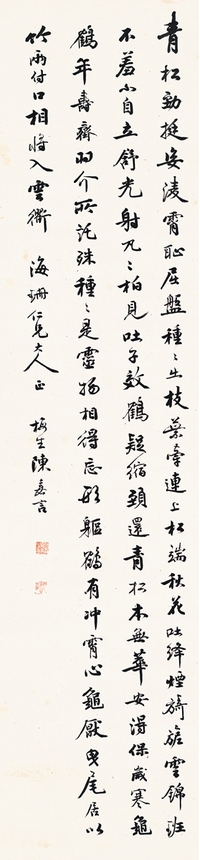 青松勁挺姿凌霄恥屈盤種種出枝葉牽連上松端秋花吐絳煙旖旎雲錦斑
不羞不自立舒光射丸丸柏見吐子效鶴疑縮頸還青松本無華安得保歲寒龜
鶴年壽齊羽介所託殊種種是靈物相得忘形軀鶴有冲霄心龜厭曳尾居以
竹兩附口相將入雲衢 海珊仁兄大人正 梅生陳嘉言